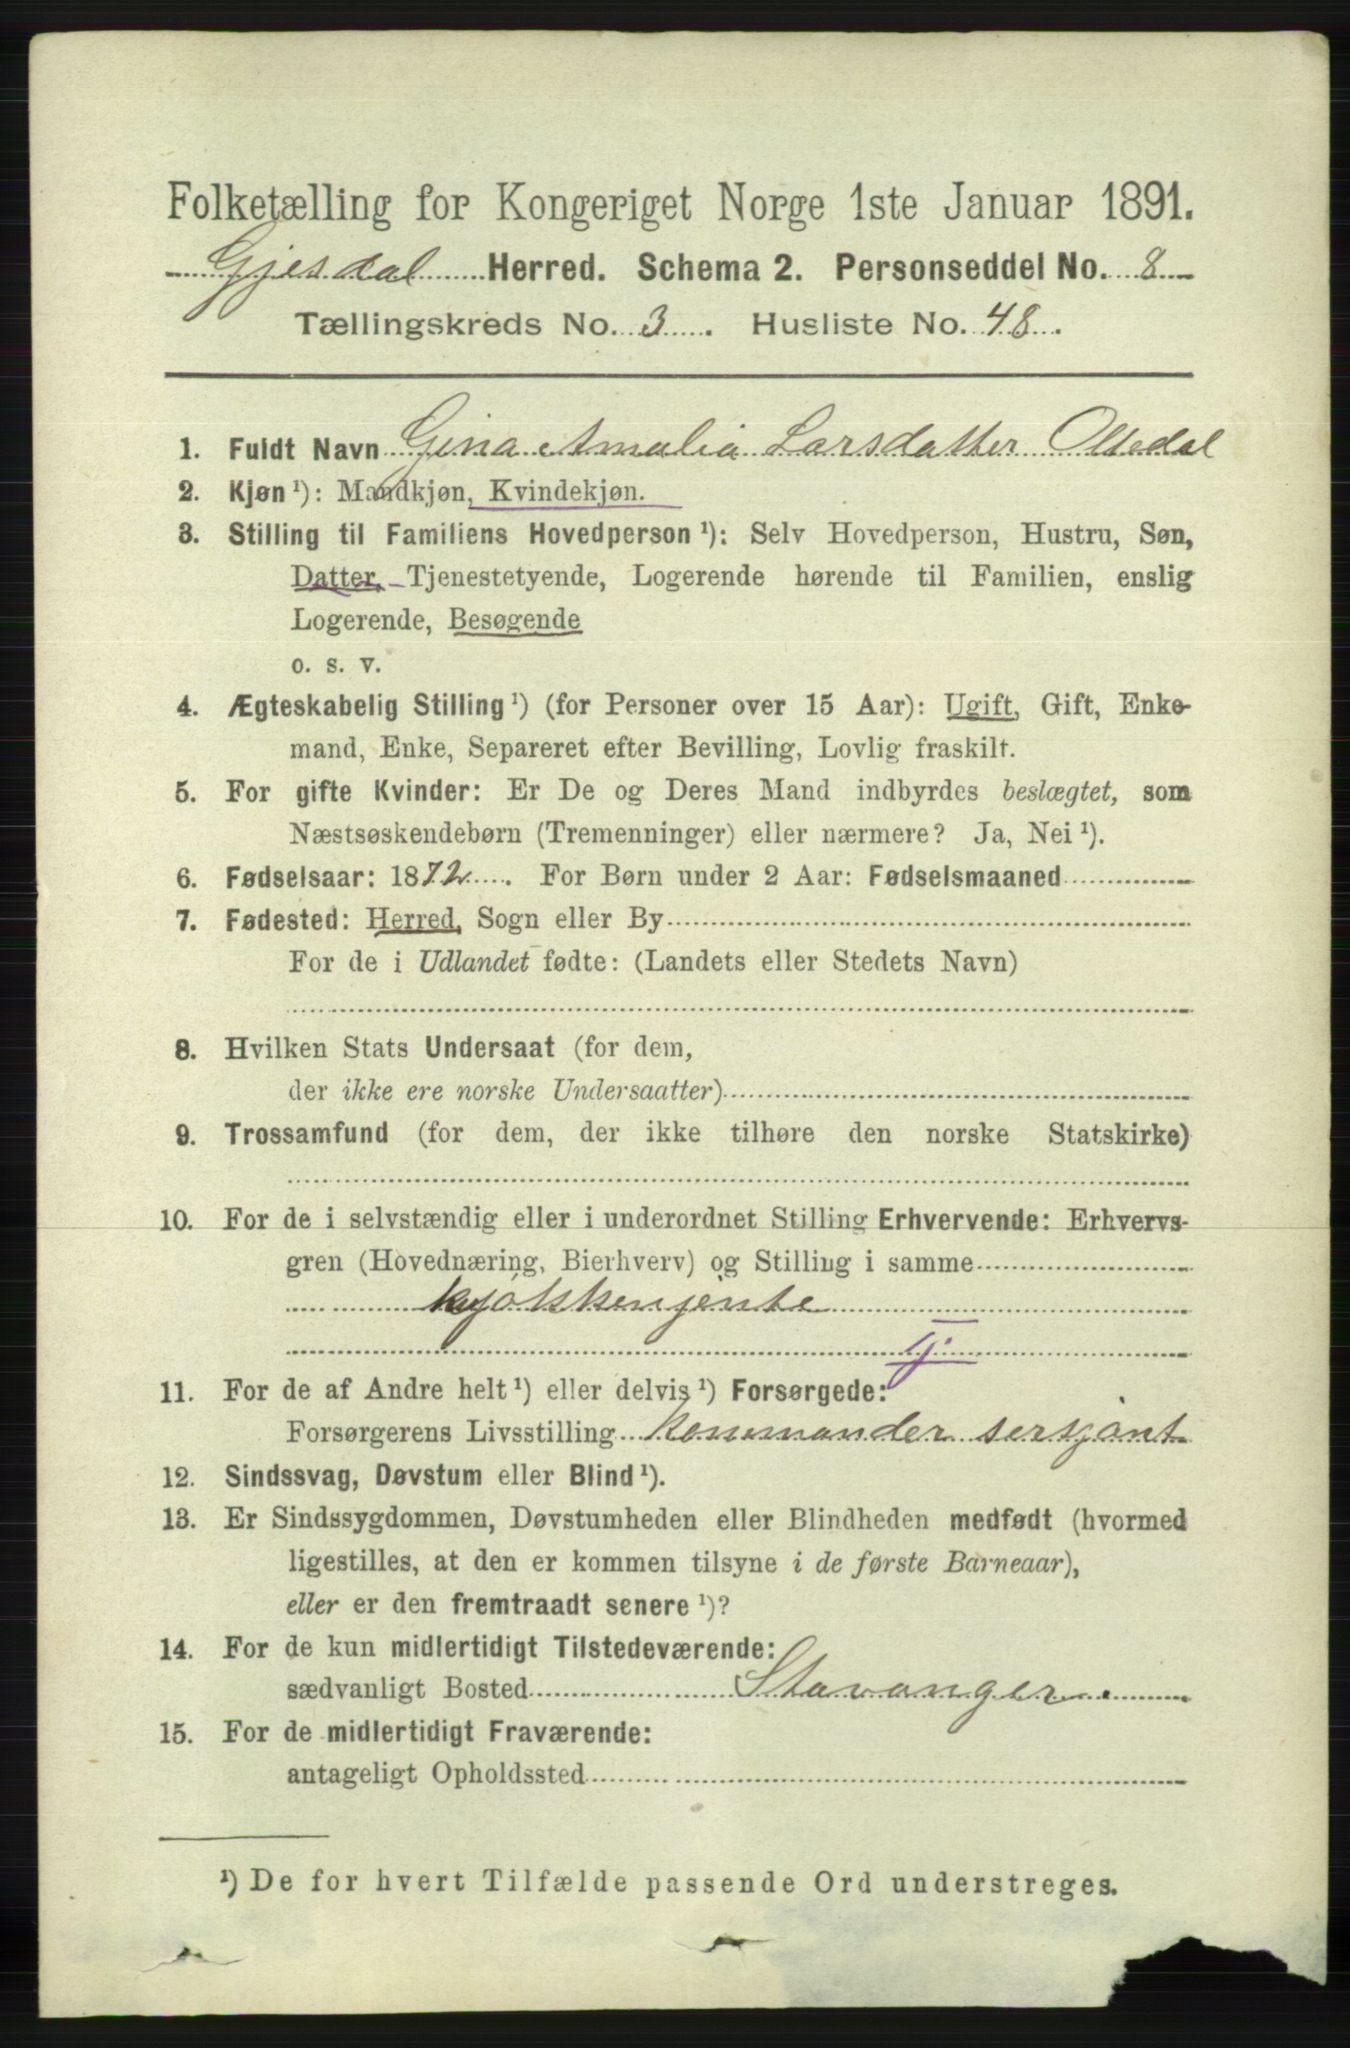 Folketælling for Kongeriget Norge 1ste Januar 1891.
Gjesdal Herred. Schema 2. Personseddel No. 8
Tællingskreds No. 3. Husliste No. 48.
1. Fuldt Navn Gina Amalia Larsdatter Oltedal
2. Kjøn ¹): Mandkjøn, Kvindekjøn.
3. Stilling til Familiens Hovedperson ¹): Selv Hovedperson, Hustru, Søn,
Datter, Tjenestetyende, Logerende hørende til Familien, enslig
Logerende, Besøgende
o. s. v.
4. Ægteskabelig Stilling ¹) (for Personer over 15 Aar): Ugift, Gift, Enke-
mand, Enke, Separeret efter Bevilling, Lovlig fraskilt.
5. For gifte Kvinder: Er De og Deres Mand indbyrdes beslægtet, som
Næstsøskendebørn (Tremenninger) eller nærmere? Ja, Nei ¹).
6. Fødselsaar: 1872. For Børn under 2 Aar: Fødselsmaaned
7. Fødested: Herred, Sogn eller By
For de i Udlandet fødte: (Landets eller Stedets Navn)
8. Hvilken Stats Undersaat (for dem,
der ikke ere norske Undersaatter)
9. Trossamfund (for dem, der ikke tilhøre den norske Statskirke)
10. For de i selvstændig eller i underordnet Stilling Erhvervende: Erhvervs-
gren (Hovednæring, Bierhverv) og Stilling i samme
kjøkkenjente
tj.
11. For de af Andre helt ¹) eller delvis ¹) Forsørgede:
Forsørgerens Livsstilling kommander serjant
12. Sindssvag, Døvstum eller Blind ¹).
13. Er Sindssygdommen, Døvstumheden eller Blindheden medfødt (hvormed
ligestilles, at den er kommen tilsyne i de første Barneaar),
eller er den fremtraadt senere ¹)?
14. For de kun midlertidigt Tilstedeværende:
sædvanligt Bosted Stavanger.
15. For de midlertidigt Fraværende:
antageligt Opholdssted
¹) De for hvert Tilfælde passende Ord understreges.